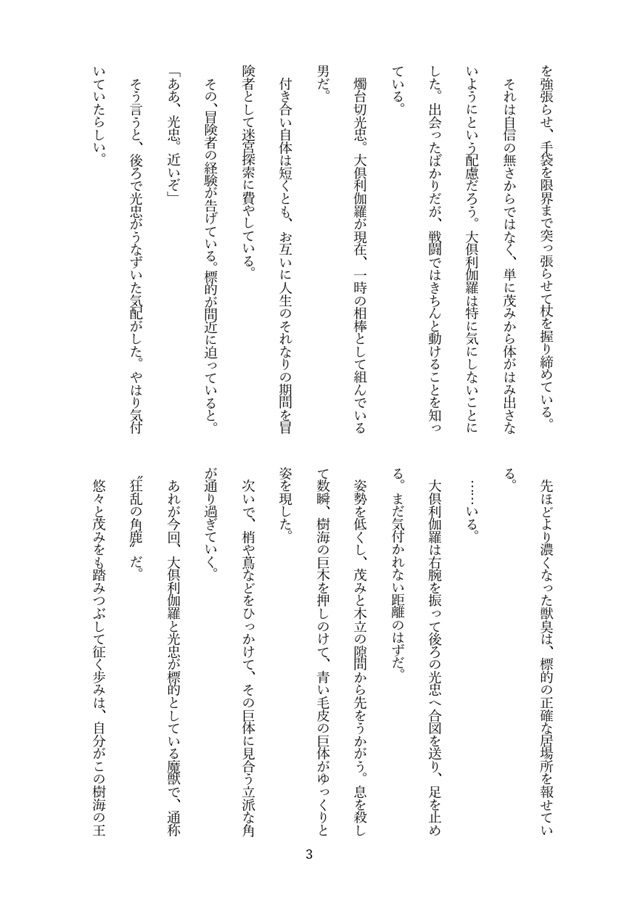 を強張らせ、手袋を限界まで突っ張らせて杖を握り締めている。
それは自信の無さからではなく、単に茂みから体がはみ出さな
いようにという配慮だろう。大倶利伽羅は特に気にしないことに
した。出会ったばかりだが、戦闘ではきちんと動けることを知っ
ている。
燭台切光忠。大倶利伽羅が現在、一時の相棒として組んでいる
男だ。
付き合い自体は短くとも、お互いに人生のそれなりの期間を冒
険者として迷宮探索に費やしている。
その、冒険者の経験が告げている。標的が間近に迫っていると。
「ああ、光忠。近いぞ」
そう言うと、後ろで光忠がうなずいた気配がした。やはり気付
いていたらしい。
先ほどより濃くなった獣臭は、標的の正確な居場所を報せてい
る。
……いる。
大倶利伽羅は右腕を振って後ろの光忠へ合図を送り、足を止め
る。まだ気付かれない距離のはずだ。
姿勢を低くし、茂みと木立の隙間から先をうかがう。息を殺し
て数瞬、樹海の巨木を押しのけて、青い毛皮の巨体がゆっくりと
姿を現した。
次いで、梢や蔦などをひっかけて、その巨体に見合う立派な角
が通り過ぎていく。
あれが今回、大倶利伽羅と光忠が標的としている魔獣で、通称
〝狂乱の角鹿〟だ。
悠々と茂みをも踏みつぶして征く歩みは、自分がこの樹海の王
3